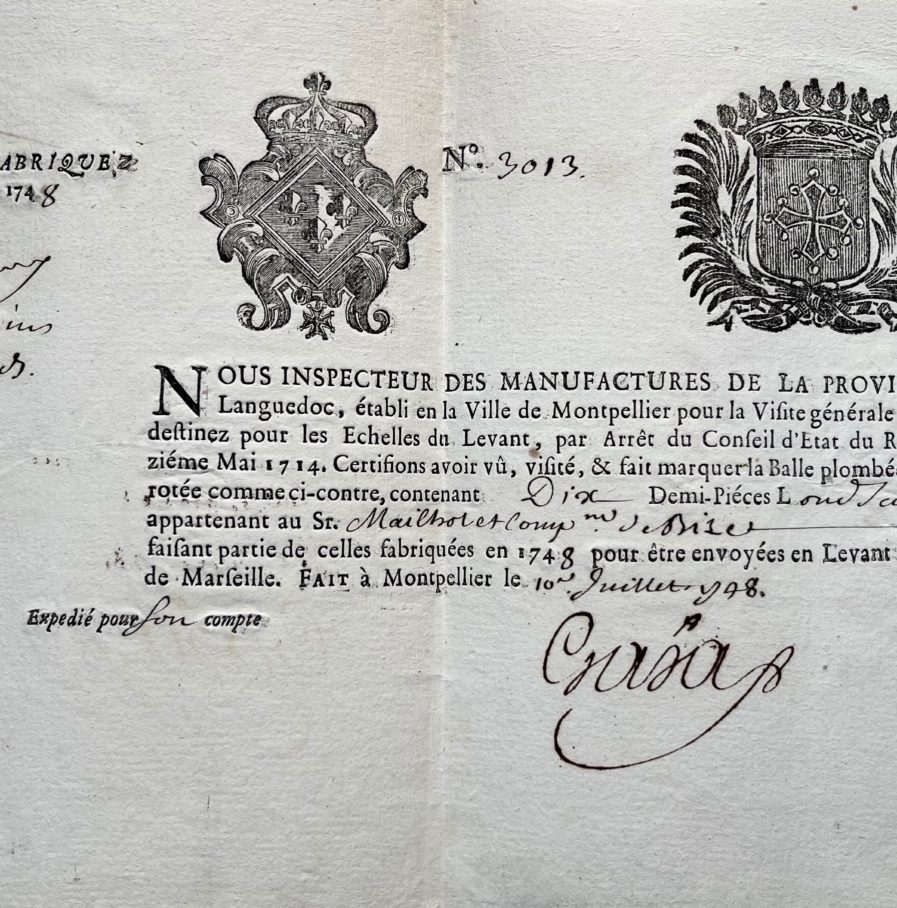 ABRIQUEZ
1748
ins
N.º 3013.
NOUS INSPECTEUR DES MANUFACTURES DE LA PROVI
Languedoc, établi en la Ville de Montpellier pour la Visite générale
destinez pour les Echelles du Levant, par Arrêt du Conseil d'Etat du R
ziéme Mai 1714. Certifions avoir vû, visité, & fait marquer la Balle plombé
rotée comme ci-contre, contenant Dix Demi-Piéces Lond
appartenant au Sr. Mailhol et Comp
faisant partie de celles fabriquées en 1748 pour être envoyées en Levant
de Marseille. FAIT à Montpellier le 10 Juillet 1748.
Expedié pour son compte